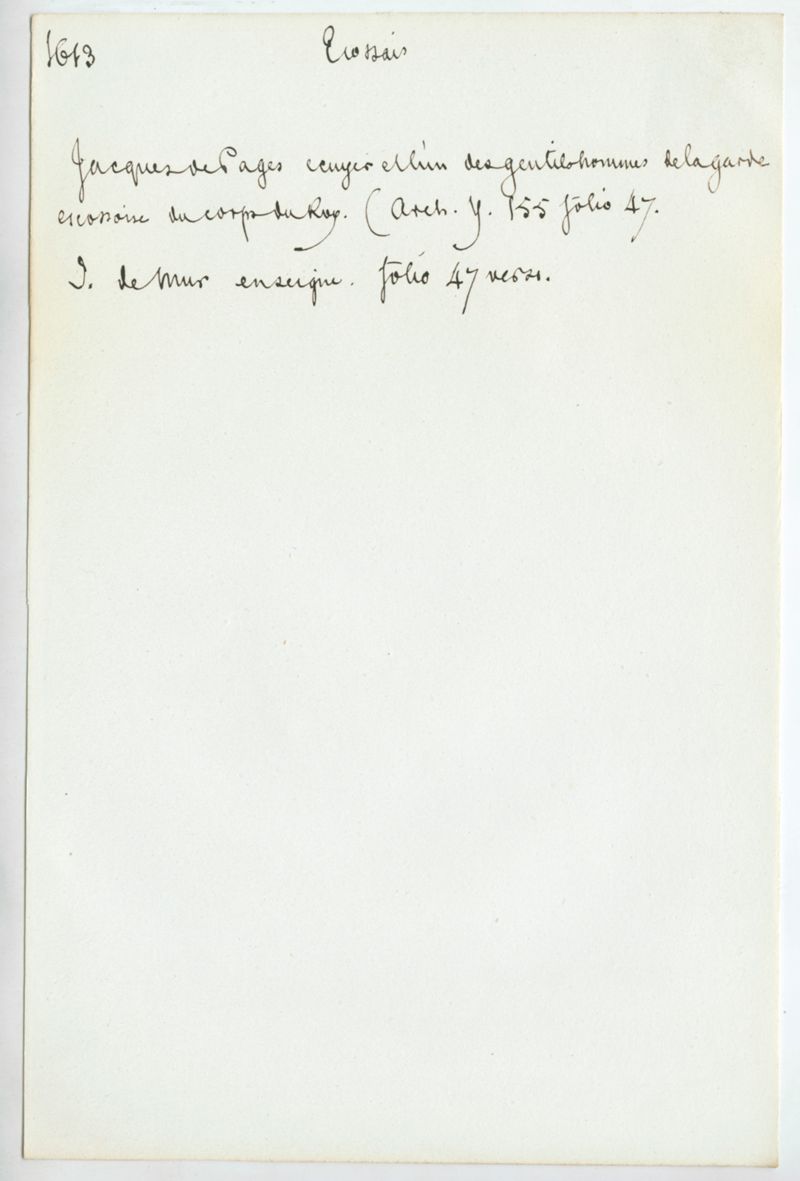 1613 Ecossais
Jacques de Pages ecuyer et l'un des gentilshommes de la garde
escossoise du corps du Roy. (Arch. Y. 155 folio 47.
J. de Mur enseigne. folio 47 verso.